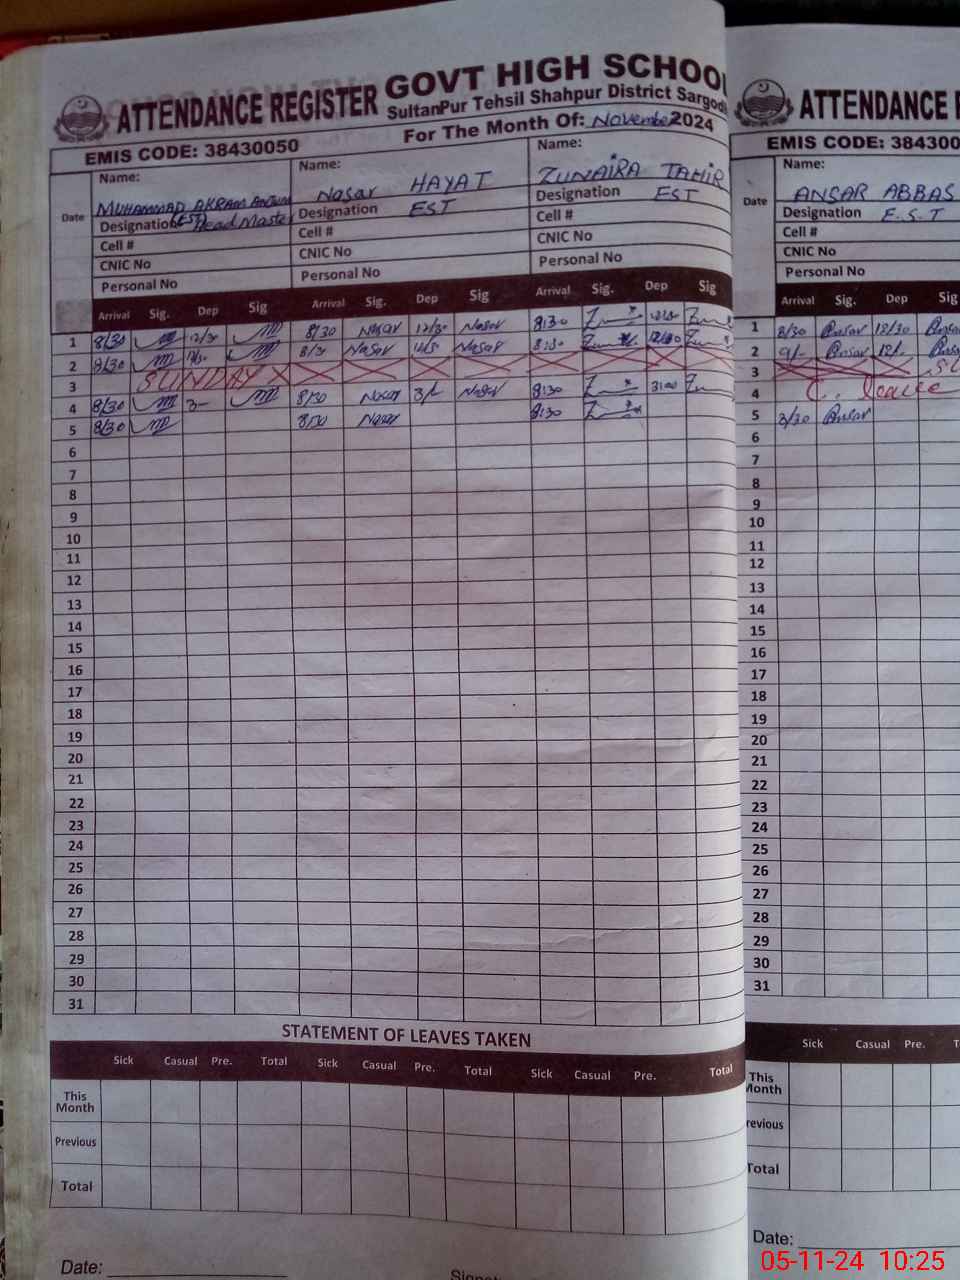 ATTENDANCE REGISTER GOVT HIGH SCHOOL
SultanPur Tehsil Shahpur District Sargod
EMIS CODE: 38430050 For The Month Of: November 2024
Date
Name: MUHAMMAD AKRAM ANJUM
Designation (EST) Head Master
Cell #
CNIC No
Personal No
Name: Nasar HAYAT
Designation EST
Cell #
CNIC No
Personal No
Name: ZUNAIRA TAHIR
Designation EST
Cell #
CNIC No
Personal No
Arrival Sig. Dep Sig Arrival Sig. Dep Sig Arrival Sig. Dep Sig
1 8/30 12/30 8/30 Nasar 12/30 Nasar 8:30 12:30
2 8/30 8/30 Nasar 12/30 Nasar 8:30 12:30
3 SUNDAY
4 8/30 3- 8/30 Nasar 3/- Nasar 8:30 3:00
5 8/30 8/30 Nasar 8:30
6
7
8
9
10
11
12
13
14
15
16
17
18
19
20
21
22
23
24
25
26
27
28
29
30
31
STATEMENT OF LEAVES TAKEN
Sick Casual Pre. Total Sick Casual Pre. Total Sick Casual Pre. Total
This Month
Previous
Total
Date:
ATTENDANCE R
EMIS CODE: 384300
Date
Name: ANSAR ABBAS
Designation E.S.T
Cell #
CNIC No
Personal No
Arrival Sig. Dep Sig
1 8/30 Ansar 12/30 Ansar
2 9/- Ansar 12/- Ansar
3 SU
4 C. leave
5 8/30 Ansar
6
7
8
9
10
11
12
13
14
15
16
17
18
19
20
21
22
23
24
25
26
27
28
29
30
31
Sick Casual Pre. T
This Month
revious
Total
Date:
05-11-24 10:25